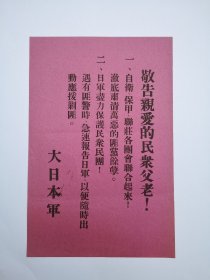 敬告親愛的民衆父老！
一、自衛 保甲 聯莊各團會聯合起來！
澈底肅清萬惡的匪黨餘孽。
二、日軍盡力保護民衆民團！
遇有匪警時 急速報告日軍 以便隨時出
動應援剿匪。
大日本軍